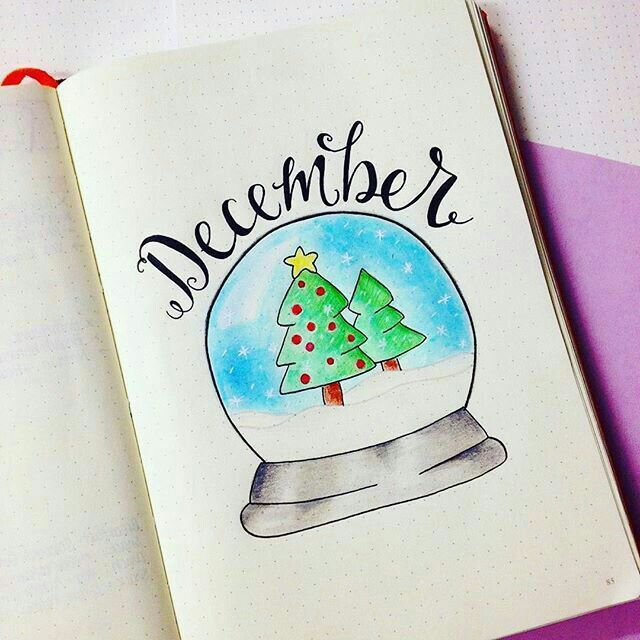 December
85